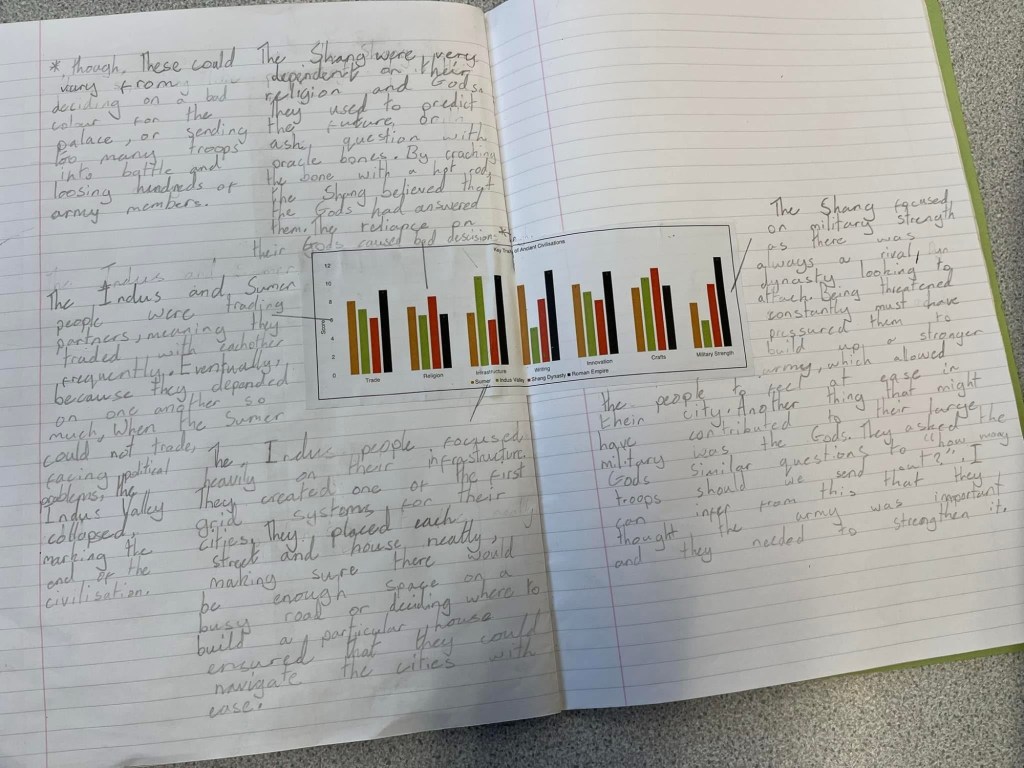 * though. These could
vary from
deciding on a bad
colour for the
palace, or sending
too many troops
into battle and
loosing hundreds of
army members.
The Shang were very
dependent on their
religion and Gods.
They used to predict
the future or
ask question with
oracle bones. By cracking
the bone with a hot rod,
the Shang believed that
the Gods had answered
them. The reliance on
their Gods caused bad descisions *
The Indus and Sumer
people were trading
partners, meaning they
traded with eachother
frequently. Eventually,
because they depanded
on one another so
much, When the Sumer
could not trade,
facing political
problems, the
Indus Valley
collapsed,
marking the
end of the
civilisation.
The Indus people focused
heavily on their infrastructure.
They created one of the first
grid systems for their
cities. They placed each
street and house neatly,
making sure there would
be enough space on a
busy road or deciding where to
build a particular house
ensured that they could
navigate the cities with
ease.
Key Traits of Ancient Civilisations
Score
12
10
8
6
4
2
0
Trade
Religion
Infrastructure
Writing
Innovation
Crafts
Military Strength
Sumer Indus Valley Shang Dynasty Roman Empire
The Shang focused
on military strength
as there was
always a rival
dynasty looking to
attack. Being threatened
constantly must have
pressured them to
build up a stronger
army, which allowed
the people to feel at ease in
their city. Another thing that might
have contributed to their large
military was the Gods. They asked the
Gods similar questions to "how many
troops should we send out?". I
can infer from this that they
thought the army was important
and they needed to strengthen it.